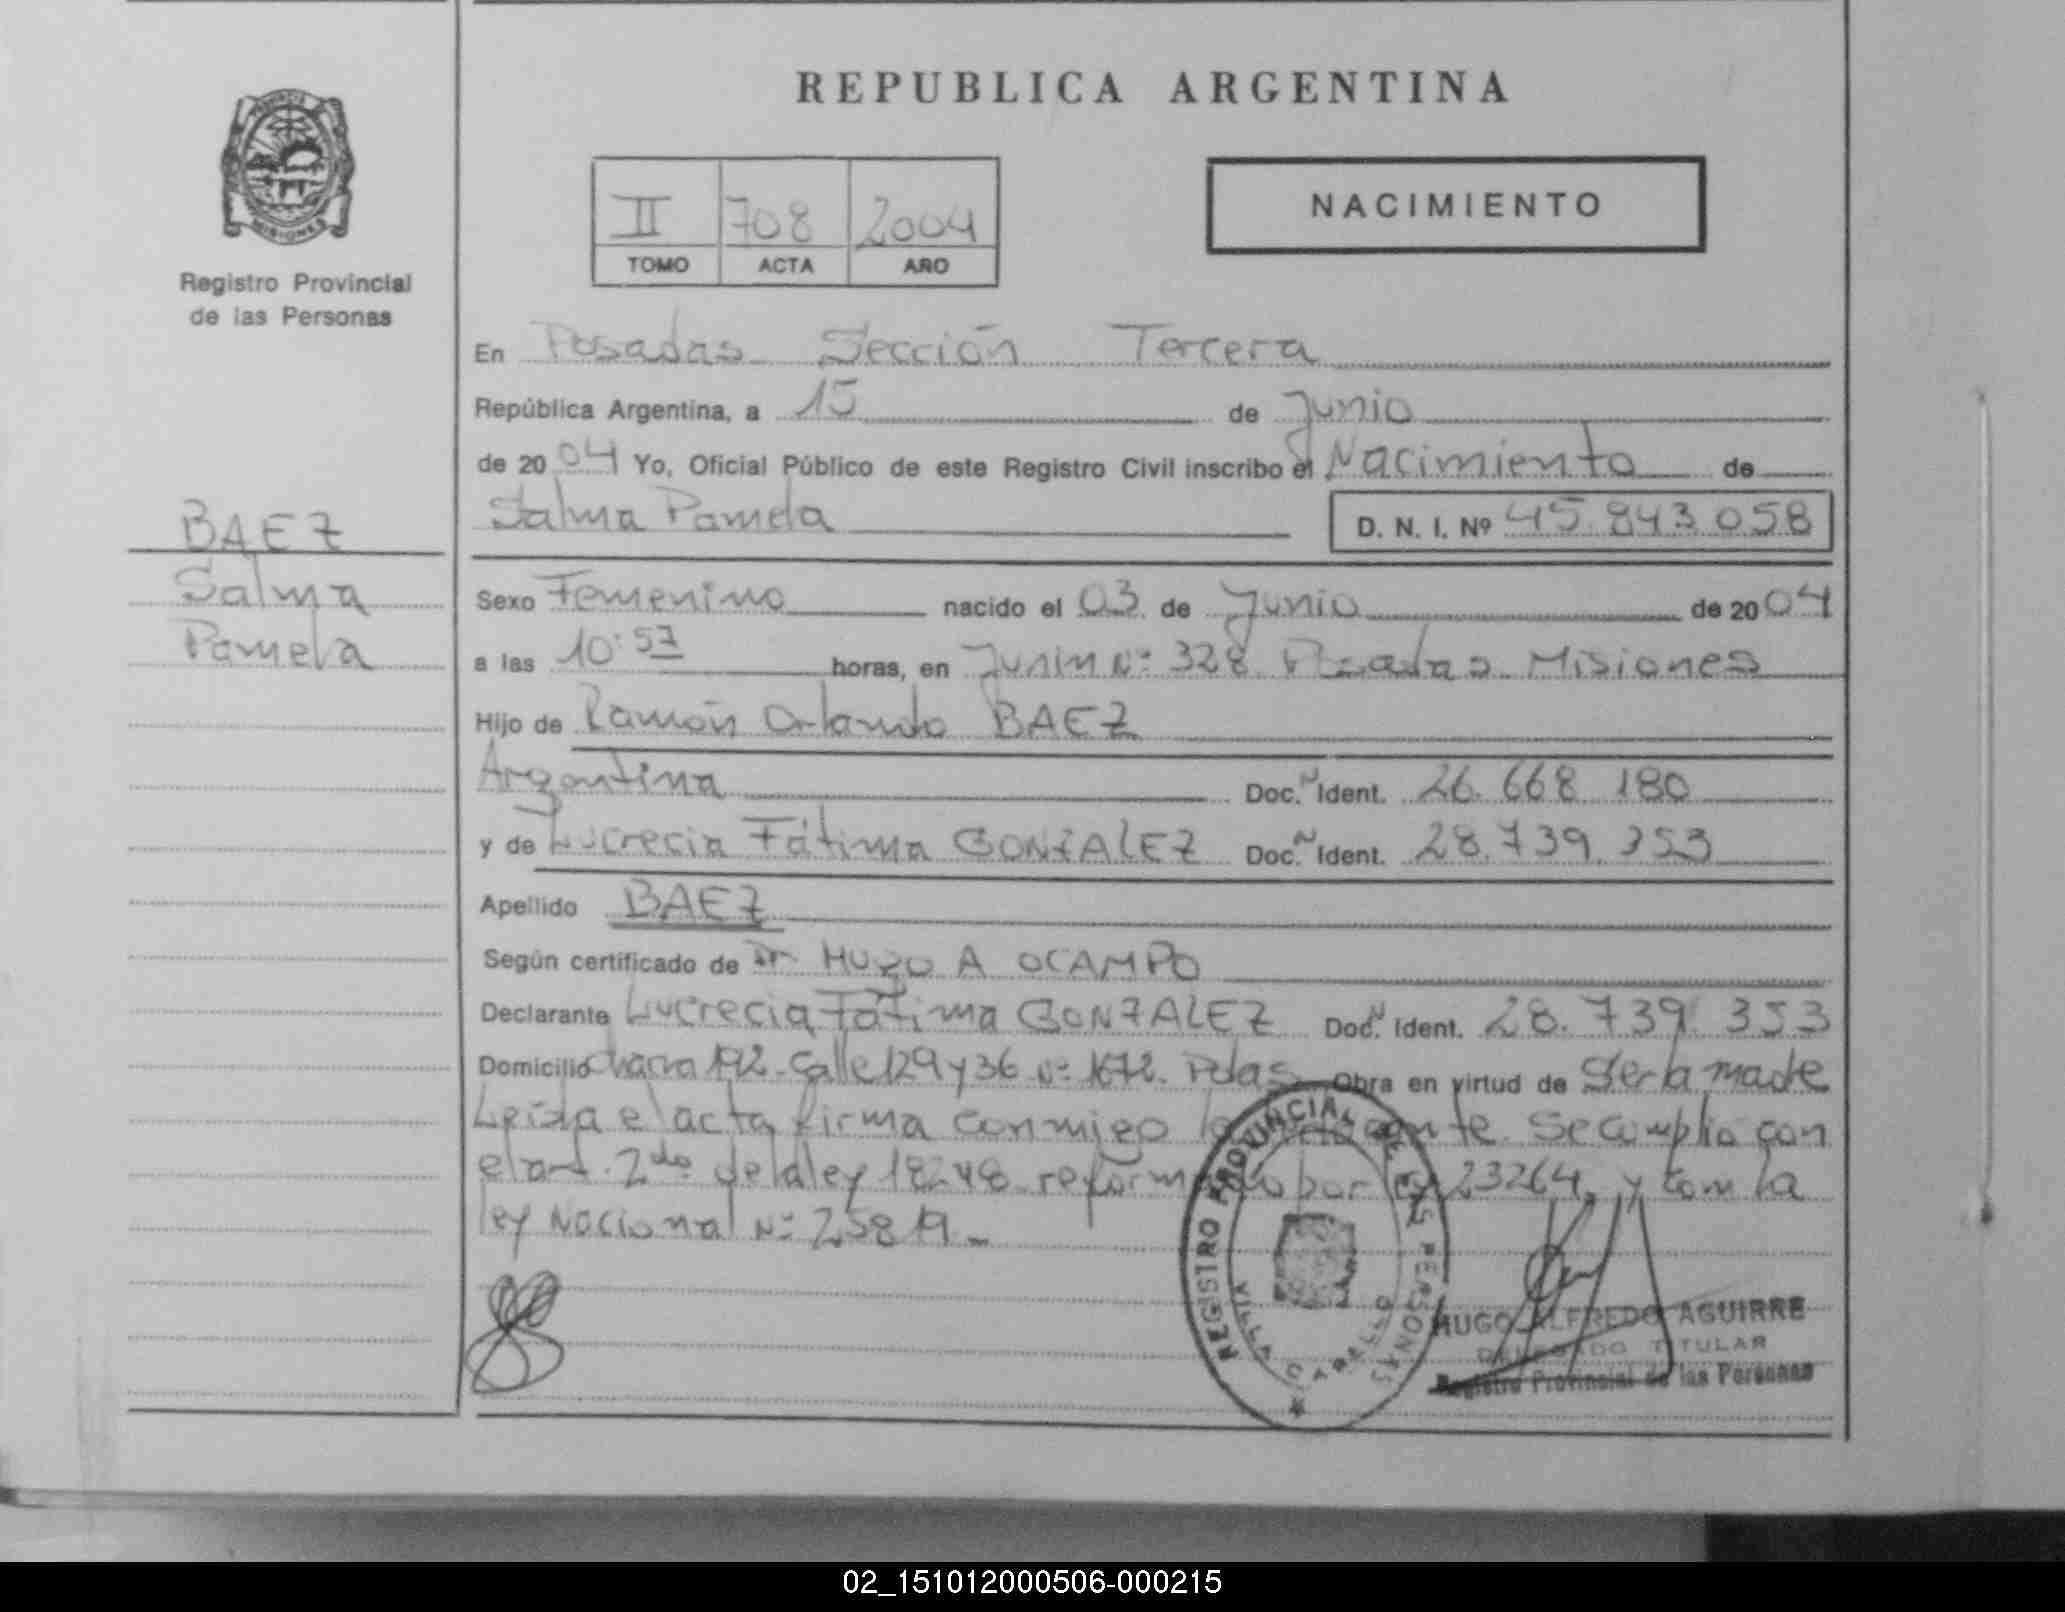 REPUBLICA ARGENTINA
PROVINCIA
MISIONES
Registro Provincial
de las Personas
II 708 2004
TOMO ACTA AÑO
NACIMIENTO
En Posadas Sección Tercera
República Argentina, a 15 de Junio
de 2004 Yo, Oficial Público de este Registro Civil inscribo el Nacimiento de
Salma Pamela D. N. I. Nº 45.843.058
BAEZ
Salma
Pamela
Sexo Femenino nacido el 03 de Junio de 2004
a las 10:57 horas, en Junin Nº 328 Posadas Misiones
Hijo de Ramón Orlando BAEZ
Argentina Doc. N Ident. 26.668.180
y de Lucrecia Fátima GONZALEZ Doc. N Ident. 28.739.353
Apellido BAEZ
Según certificado de Dr HUGO A OCAMPO
Declarante Lucrecia Fátima GONZALEZ Doc. N Ident. 28.739.353
Domicilio Chacra 192 - Calle 129 y 36 Nº 1672. Pdas Obra en virtud de Ser la madre
Leida el acta, firma conmigo la declarante. Se cumplio con
el art. 2do de la ley 18248 reformado por ley 23264, y con la
ley Nacional Nº 25819.-
REGISTRO PROVINCIAL DE LAS PERSONAS
VILLA CABELLO
HUGO ALFREDO AGUIRRE
DELEGADO TITULAR
Registro Provincial de las Personas
02_151012000506-000215